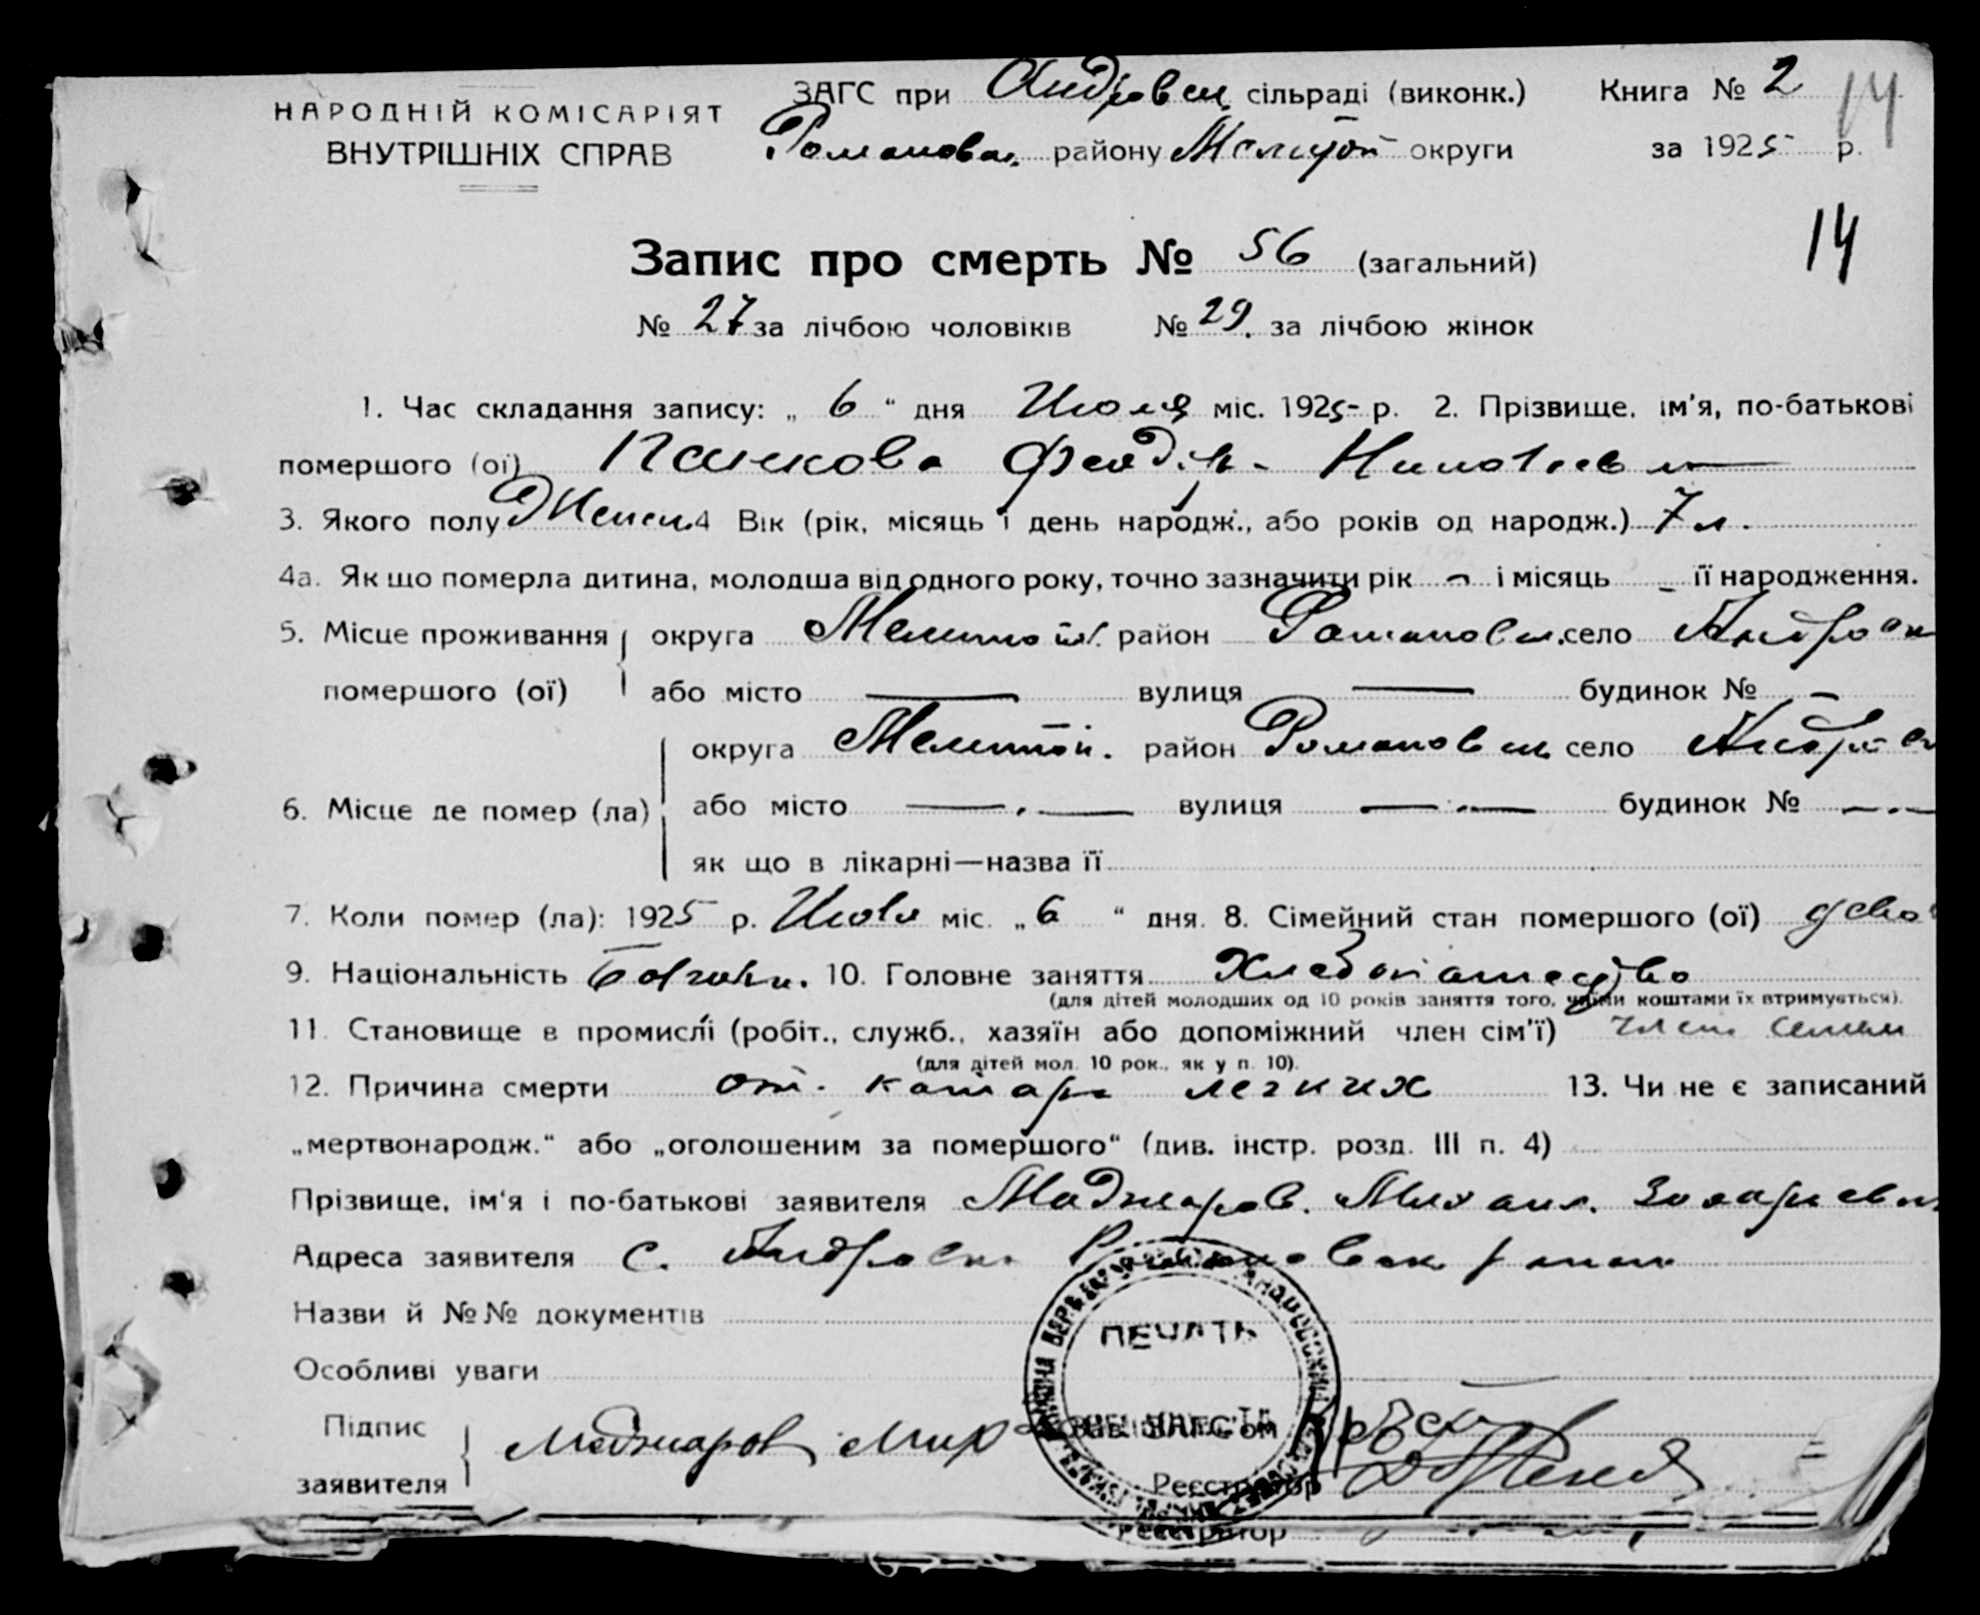 НАРОДНІЙ КОМІСАРІЯТ
ВНУТРІШНІХ СПРАВ
ЗАГС при Андровск. сільраді (виконк.) Книга № 2 14
Романовск. району Мелитой округи за 1925 р.
14
Запис про смерть № 56 (загальний)
№ 27 за лічбою чоловіків № 29. за лічбою жінок
1. Час складання запису: „ 6 “ дня Июля міс. 1925 р. 2. Прізвище, ім’я, по-батькові
помершого (ої) Николаевна
3. Якого полу Женск 4 Вік (рік, місяць і день народж., або років од народж.) 7 л.
4а. Як що померла дитина, молодша від одного року, точно зазначити рік – і місяць – її народження.
5. Місце проживання округа Мелитой. район Романовск. село Андровк
помершого (ої) або місто — вулиця — будинок № –
округа Мелитой. район Романовск село Андровк
6. Місце де помер (ла) або місто —.— вулиця —.— будинок № —.—
як що в лікарні—назва її
7. Коли помер (ла): 1925 р. Июля міс. „ 6 “ дня. 8. Сімейний стан помершого (ої)
9. Національність Болгарк. 10. Головне заняття Хлебопашество
(для дітей молодших од 10 років заняття того, чиїми коштами їх втримується).
11. Становище в промислі (робіт., служб., хазяїн або допоміжний член сім’ї) член семьи
(для дітей мол. 10 рок., як у п. 10).
12. Причина смерти от. катара легких 13. Чи не є записаний
„мертвонародж.“ або „оголошеним за помершого“ (див. інстр. розд. III п. 4)
Прізвище, ім’я і по-батькові заявителя Маджаров. Михаил. Захариевич
Адреса заявителя с. Андровка Романовск район
Назви й №№ документів
Особливі уваги
ПЕЧАТЬ
Підпис
заявителя Маджаров Мих
Зав. ЗАГС’ом
Реєстратор
Реєстратор